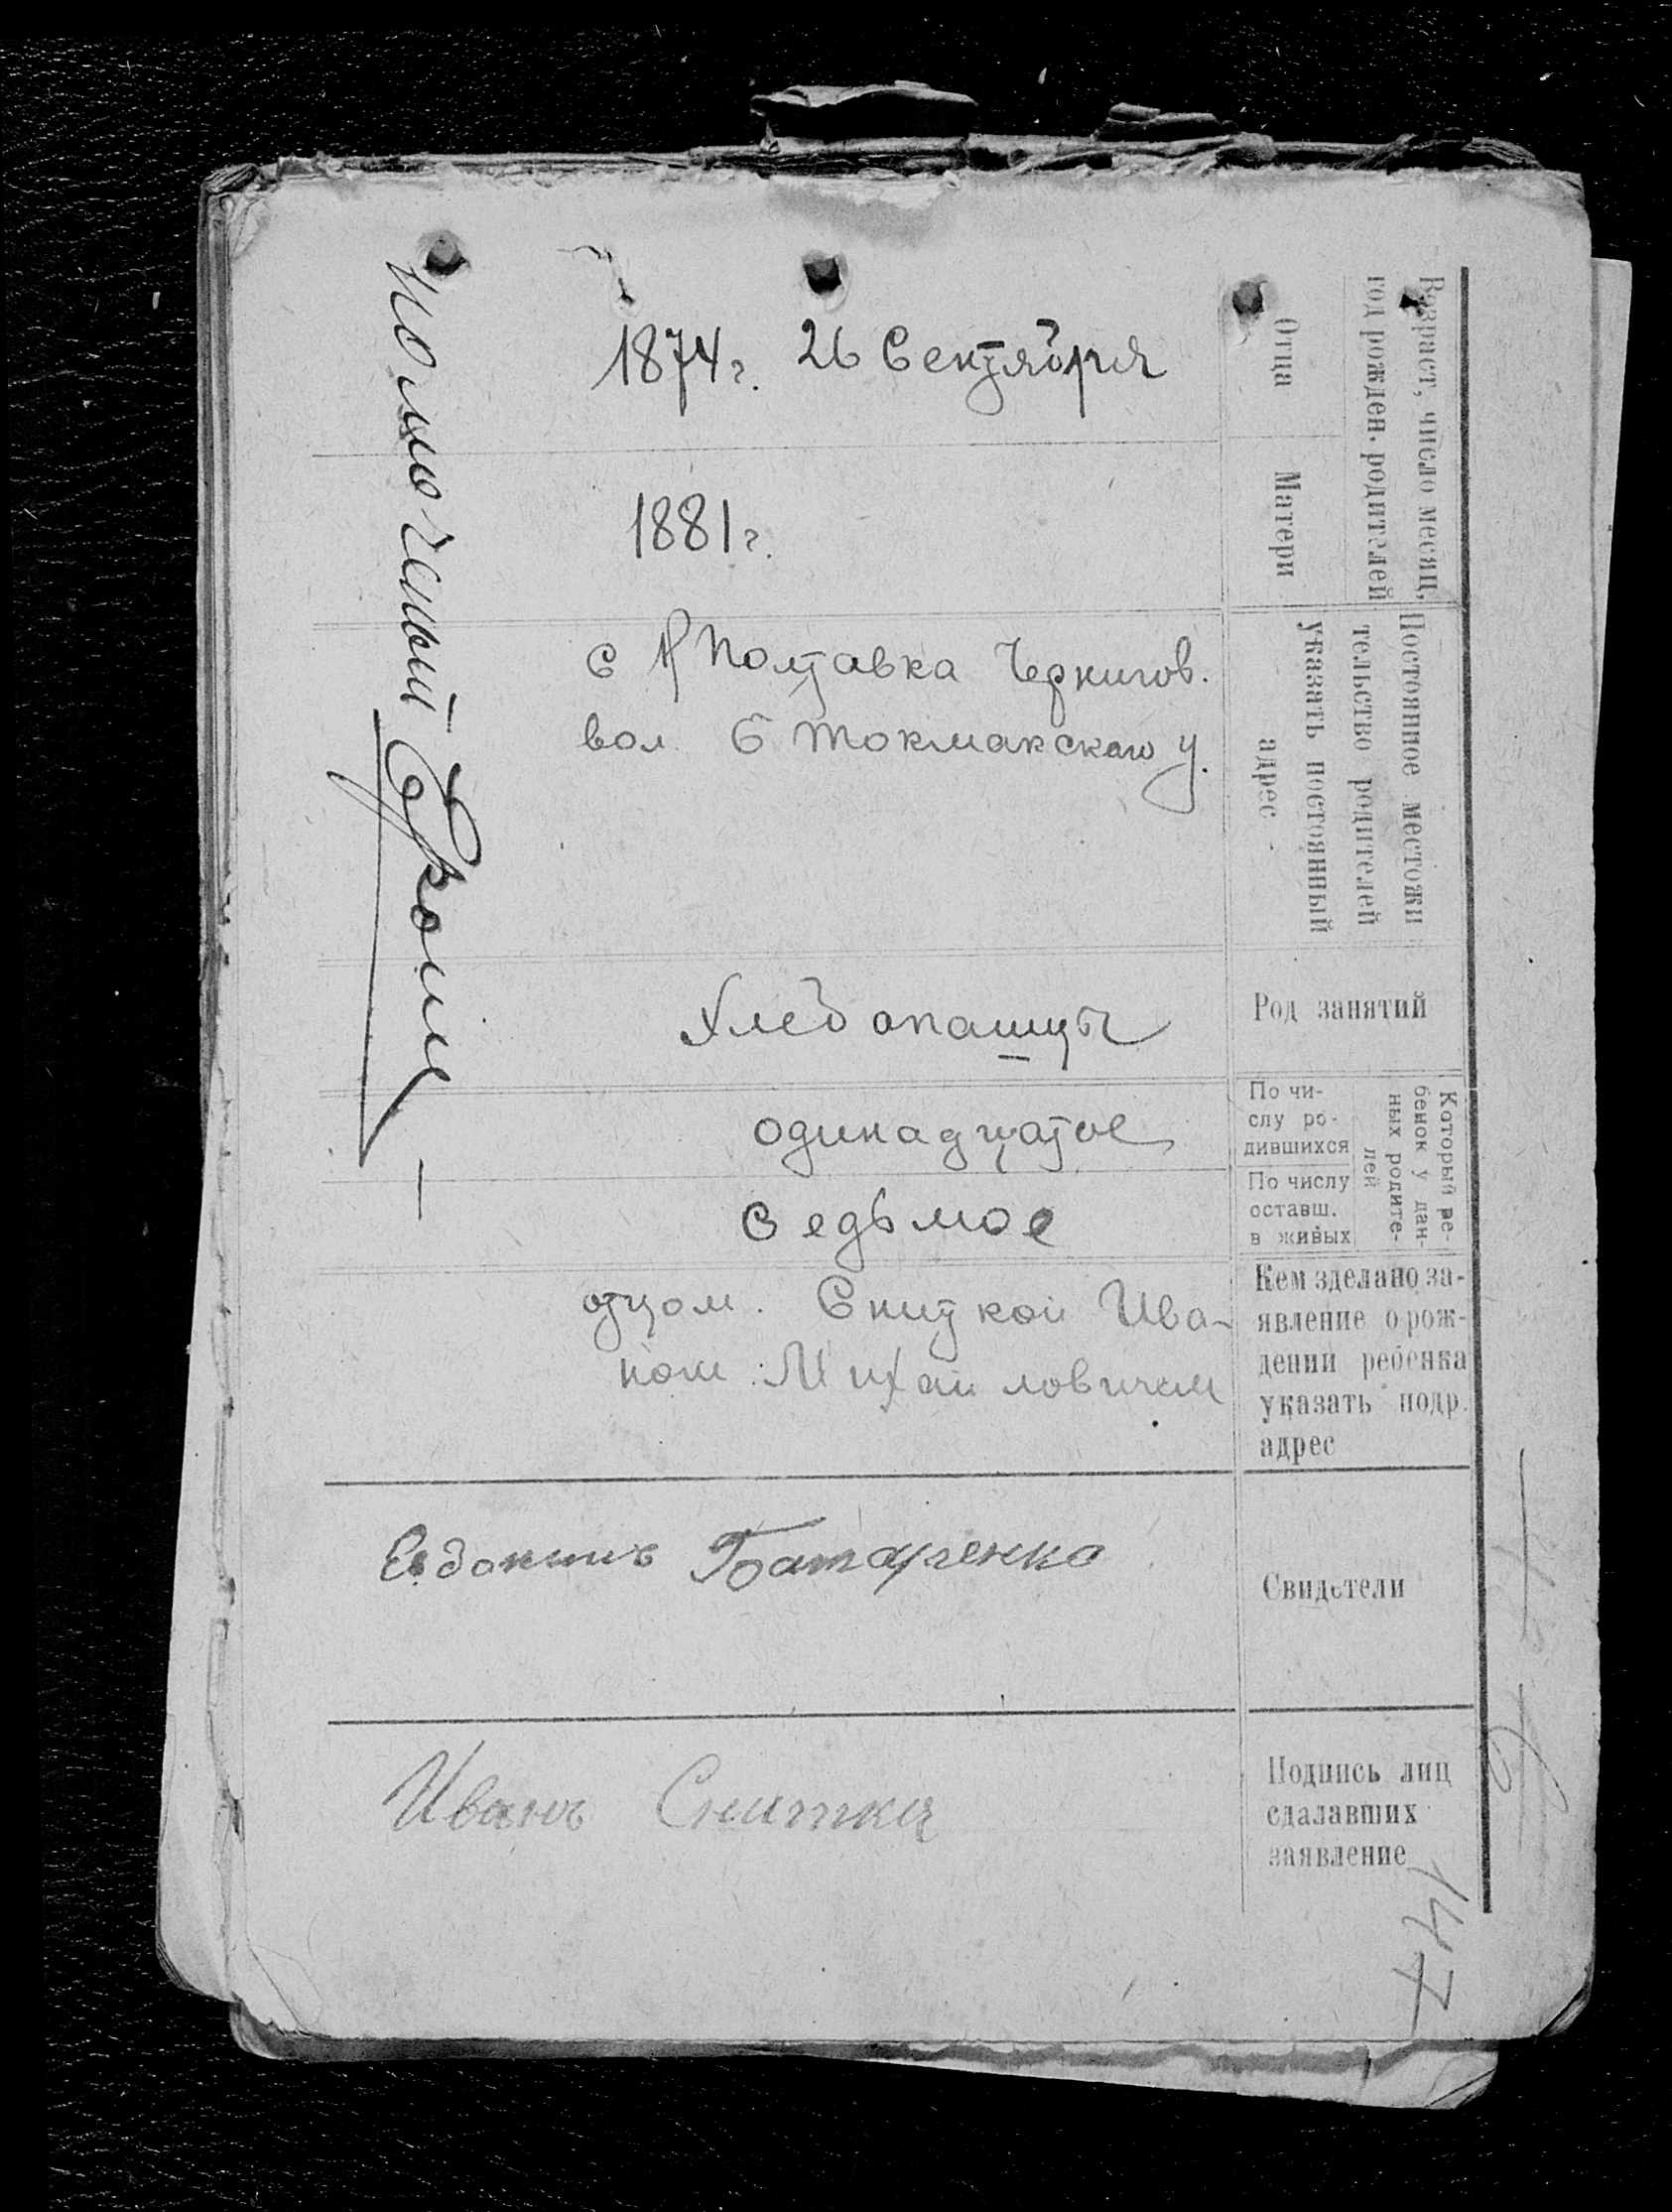 Возраст, число месяц,
год рожден. родителей
Отца
1874 г. 26 Сентября
Матери
1881 г.
Постоянное местожи
тельство родителей
указать постоянный
адрес
с Н Полтавка Чернигов.
вол Б Токмакского у.
Род занятий
Хлебопашцы
Который ре-
бенок у дан-
ных родите-
лей
По чи-
слу ро-
дившихся
одинадцатое
По числу
оставш.
в живых
седьмое
Кем зделано за-
явление о рож-
дении ребенка
указать подр.
адрес
отцом. Сниткой Ива-
ном Михайловичем
Свидетели
Батарченко
Подпись лиц
сдалавших
заявление
Иванъ Снитка
147